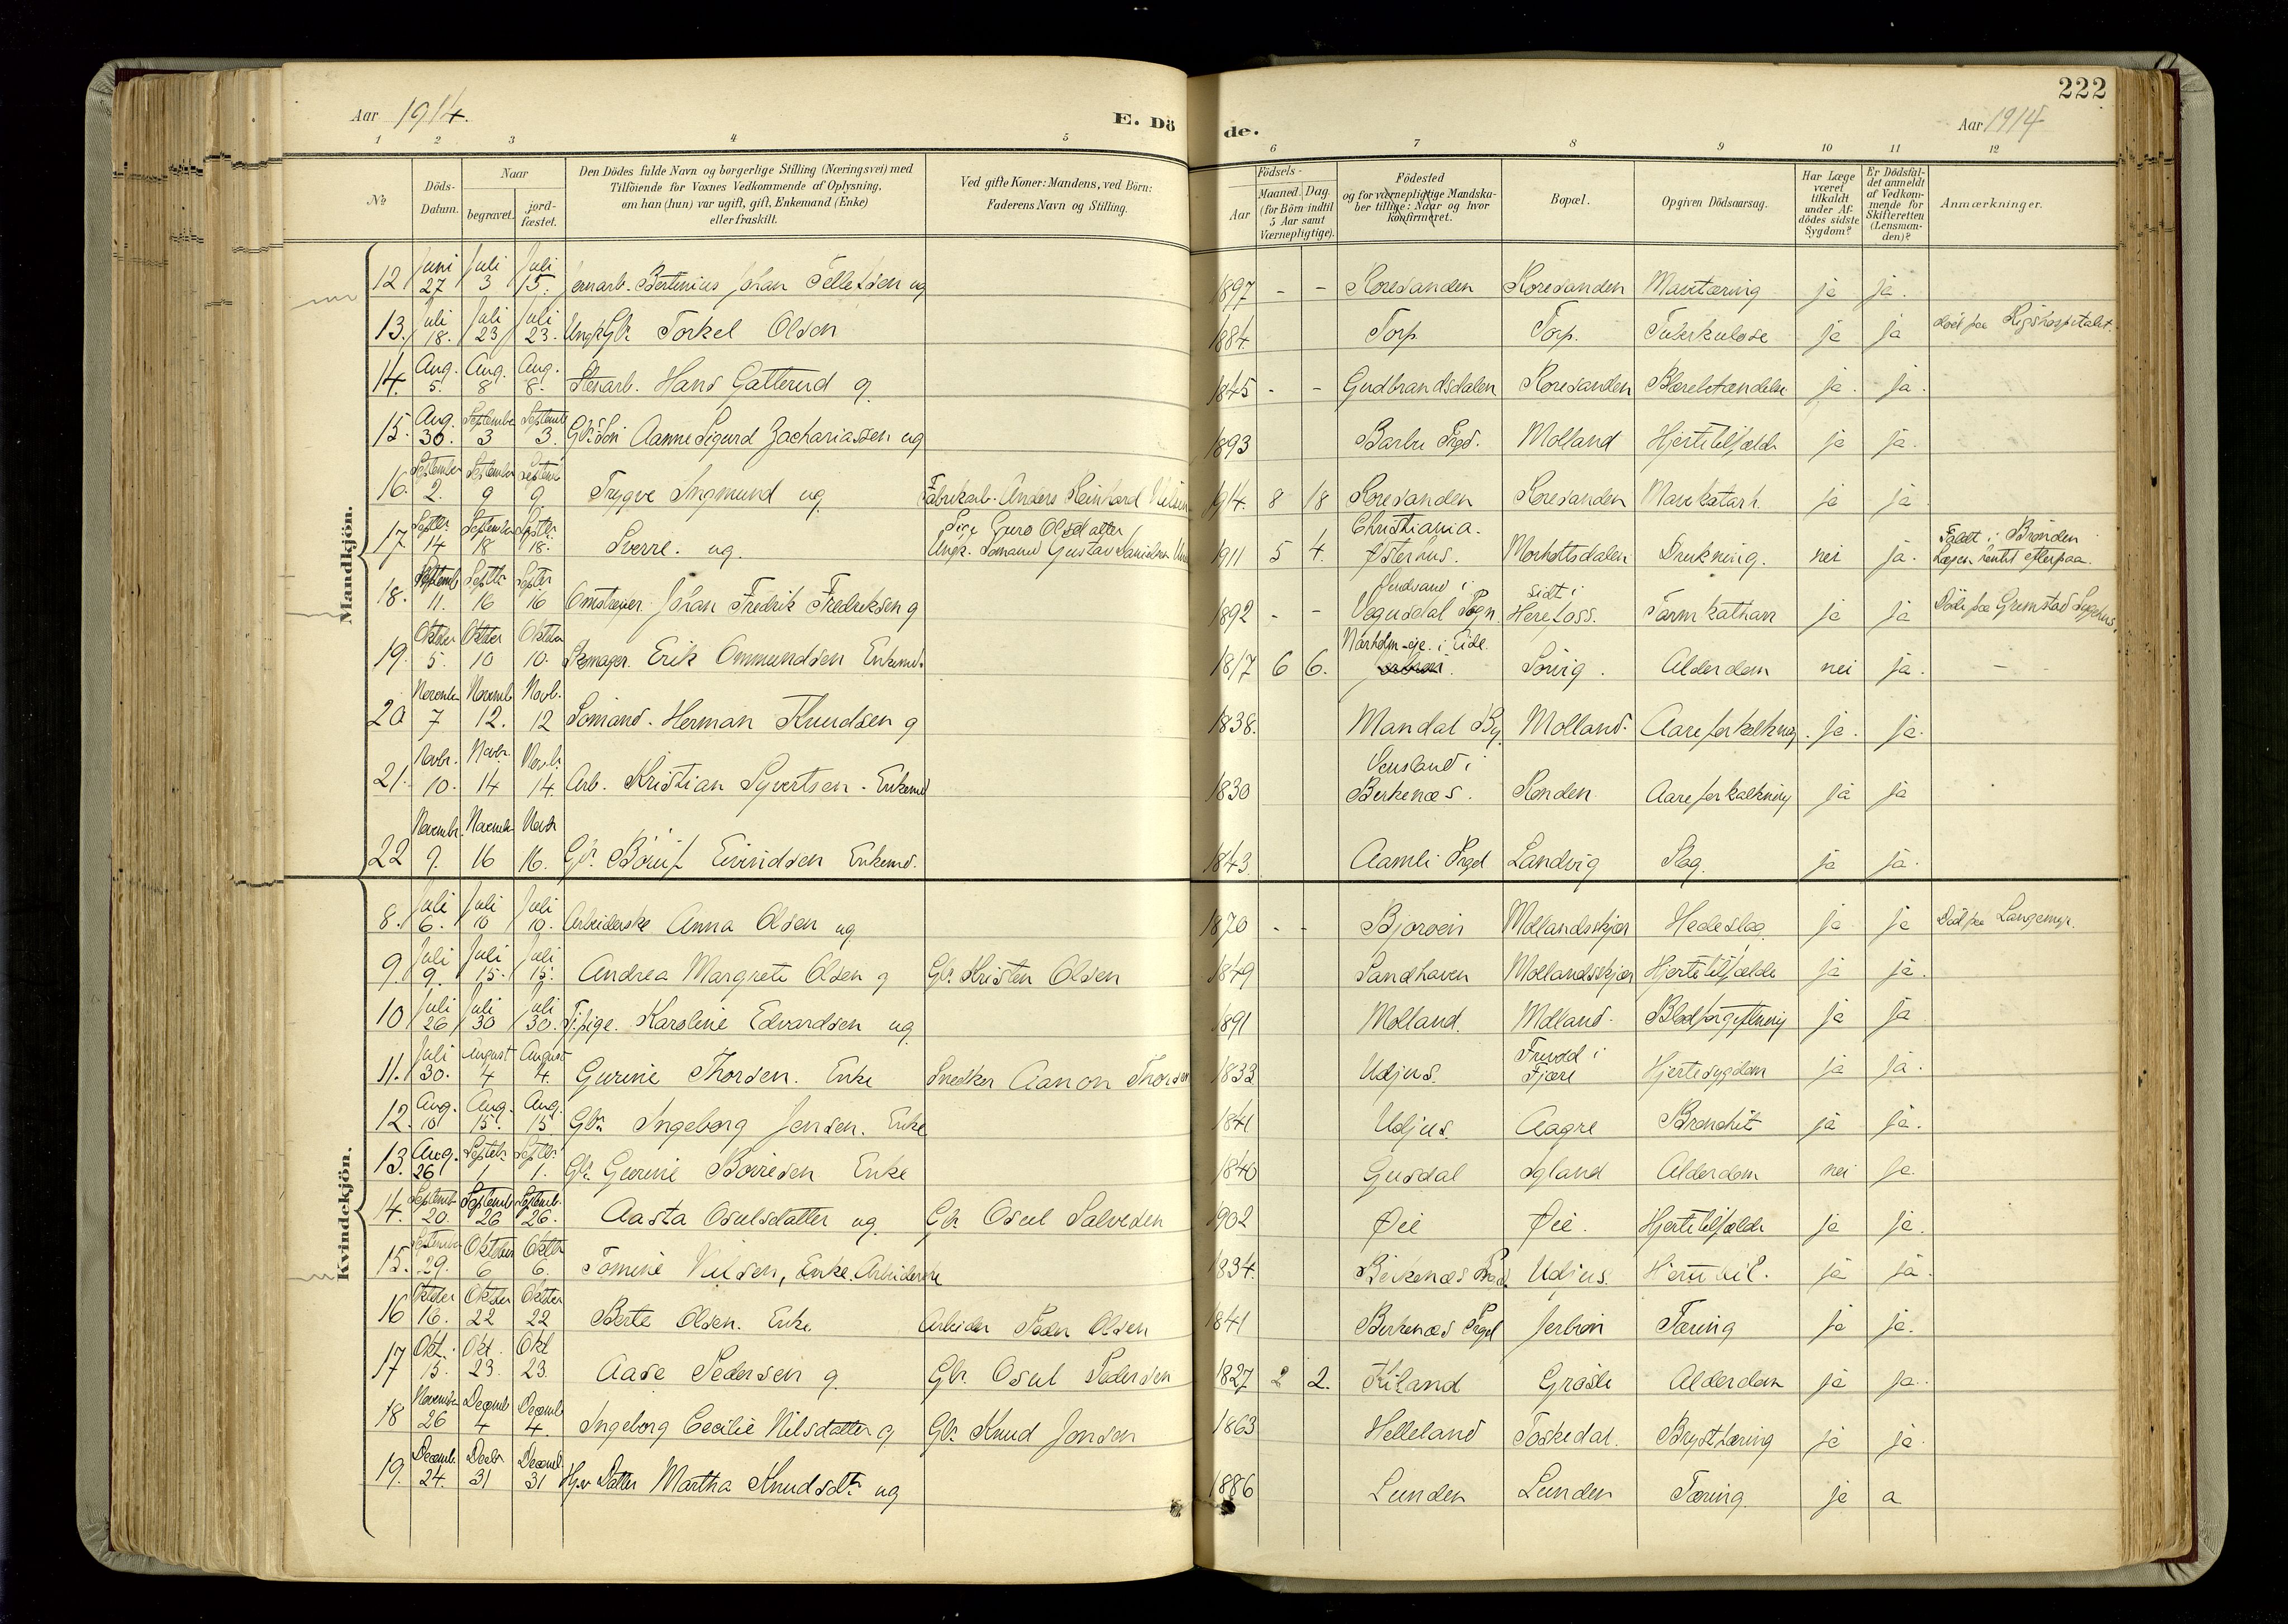 222
Aar 1914. E. Dö de. Aar 1914
1 2 3 4 5 6 7 8 9 10 11 12
No. Döds-Datum. Naar begravet. jord-fæstet. Den Dödes fulde Navn og borgerlige Stilling (Næringsvei) med Tilföiende for Voxnes Vedkommende af Oplysning, om han (hun) var ugift, gift, Enkemand (Enke) eller fraskilt. Ved gifte Koner: Mandens, ved Börn: Faderens Navn og Stilling. Födsels- Aar Maaned. Dag. (for Börn indtil 5 Aar samt Værnepligtige). Födested og for værnepligtige Mandskaber tillige: Naar og hvor konfirmeret. Bopæl. Opgiven Dödsaarsag. Har Læge været tilkaldt under Afdödes sidste Sygdom? Er Dödsfaldet anmeldt af Vedkommende for Skifteretten (Lensmanden)? Anmærkninger.
Mandkjön.
12 Juni 27 Juli 3 Juli 15. Jernarb. Bertinius Johan Tellefsen ug 1897 - - Roresanden Roresanden Mavetæring ja ja.
13. Juli 18. Juli 23 Juli 23. Ungk. Gbr. Torkel Olsen 1884. Torp Torp. Tuberkulose ja ja död paa Rigshospitalet.
14. Aug. 5. Aug. 8 Aug. 8. Stenarb. Hans Galterud g. 1845 - - Gudbrandsdalen Roresanden Blærebetændelse ja. ja.
15. Aug. 30. September 3 Septemb 3. Gbr. Søn Aanne Sigurd Zachariassen ug 1893 Barbu Prgd. Molland Hjertetilfælde ja ja.
16. September 2. September 9 Septemb 9 Trygve Ingmund ug Fabrikarb. Anders Reinhard 1914. 8 18 Roresanden Roresanden Mavekatarh. ja ja.
17 Septbr. 14 September 18 Septbr. 18. Sverre. ug. Pige Guro Olsdatter Ungk. Sømand Gustav Danielsen 1911 5 4. Christiania. Østerhus. Morholtsdalen Drukning. nei ja. Faldt i Brønden Lægen hentet efterpaa.
18. Septemb 11. Septbr 16 Septbr 16 Omstreger Johan Fredrik Fredriksen g 1892 - - Vegusdal Sogn. sidst i Herefoss. Tarmkatharr ja ja Døde paa Grimstad Sygehus.
19. Oktober 5. Oktober 10 Oktober 10. Skomager. Erik Ommundsen Enkemd. 1817 6 6. Narholm-eie. i Eide. Sørvig. Alderdom nei ja. -
20 Novemb 7 Novemb 12. Novb. 12 Sømand. Herman Knudsen g 1838. Mandal By Molland. Aareforkalkning. ja. ja.
21. Novbr. 10. Novbr. 14 Novbr. 14. Arb. Kristian Syvertsen. Enkemd 1830 Vensland i Birkenæs. Rønden Aareforkalkning ja ja
22 Novembr. 9. Novemb 16 Novbr 16. Gbr. Børuf Eivindsen Enkemd. 1843. Aamli Prgd Landvig Slag. ja ja.
Kvindekjön.
8. Juli 6. Juli 10 Juli 10. Arbeiderske Anna Olsen ug 1870 - - Bjorvein Mollandsskjær Hedeslag ja ja Død paa Langemyr.
9. Juli 9. Juli 15. Juli 15. Andrea Margrete Olsen g Gbr. Kristen Olsen 1849 Sandhaven Mollandsskjær Hjertetilfælde ja ja.
10 Juli 26 Juli 30 Juli 30. Tj.pige. Karoline Edvardsen ug 1891 Molland. Molland. Blodforgiftning ja ja
11. Juli 30. August 4 August 4. Gurine Thorsen. Enke Snedker Aanon Thorsen 1833 Udjus. Frivold i Fjære Hjertesygdom ja ja.
12. Aug. 10 Aug. 15. Aug. 15 Gbr. Ingeborg Jensen. Enke 1841 Udjus. Aagre Bronchit ja ja.
13. Aug. 26 Septbr. 1 Septbr. 1. Gbr. Gurine Børresen Enke 1840 Gusdal Igland Alderdom nei ja.
14. Septemb 20. Septemb 26 Septemb. 26. Aasta Osulsdatter ug. Gbr. Osul Salvesen 1902 Øie Øie. Hjertetilfælde ja ja.
15. September 29. Oktober 6 Oktbr 6. Tomine Nilsen, Enke. Arbeiderske 1834. Birkenæs Prgd. Udjus. ja ja.
16 Oktober 16. Oktober 22 Oktober 22 Berte Olsen. Enke Arbeider Peder Olsen 1841 Birkenæs Prgd Jerbon Tæring ja ja.
17 Okt. 15. Okt. 23. Okt 23. Aase Pedersen g. Gbr. Osul Pedersen 1827 2 2. Kiland Grøsle Alderdom ja ja.
18 November 26 Decemb 4 Decemb 4. Ingeborg Cecilie Nilsdatter g Gbr. Knud Jensen 1863 Helleland Toskedal. Brysttæring ja ja.
19. Decemb. 24. Decbr 31 Decemb. 31 Datter Martha Knudsdtr. ug 1886 Lunden Lunden Tæring. ja a